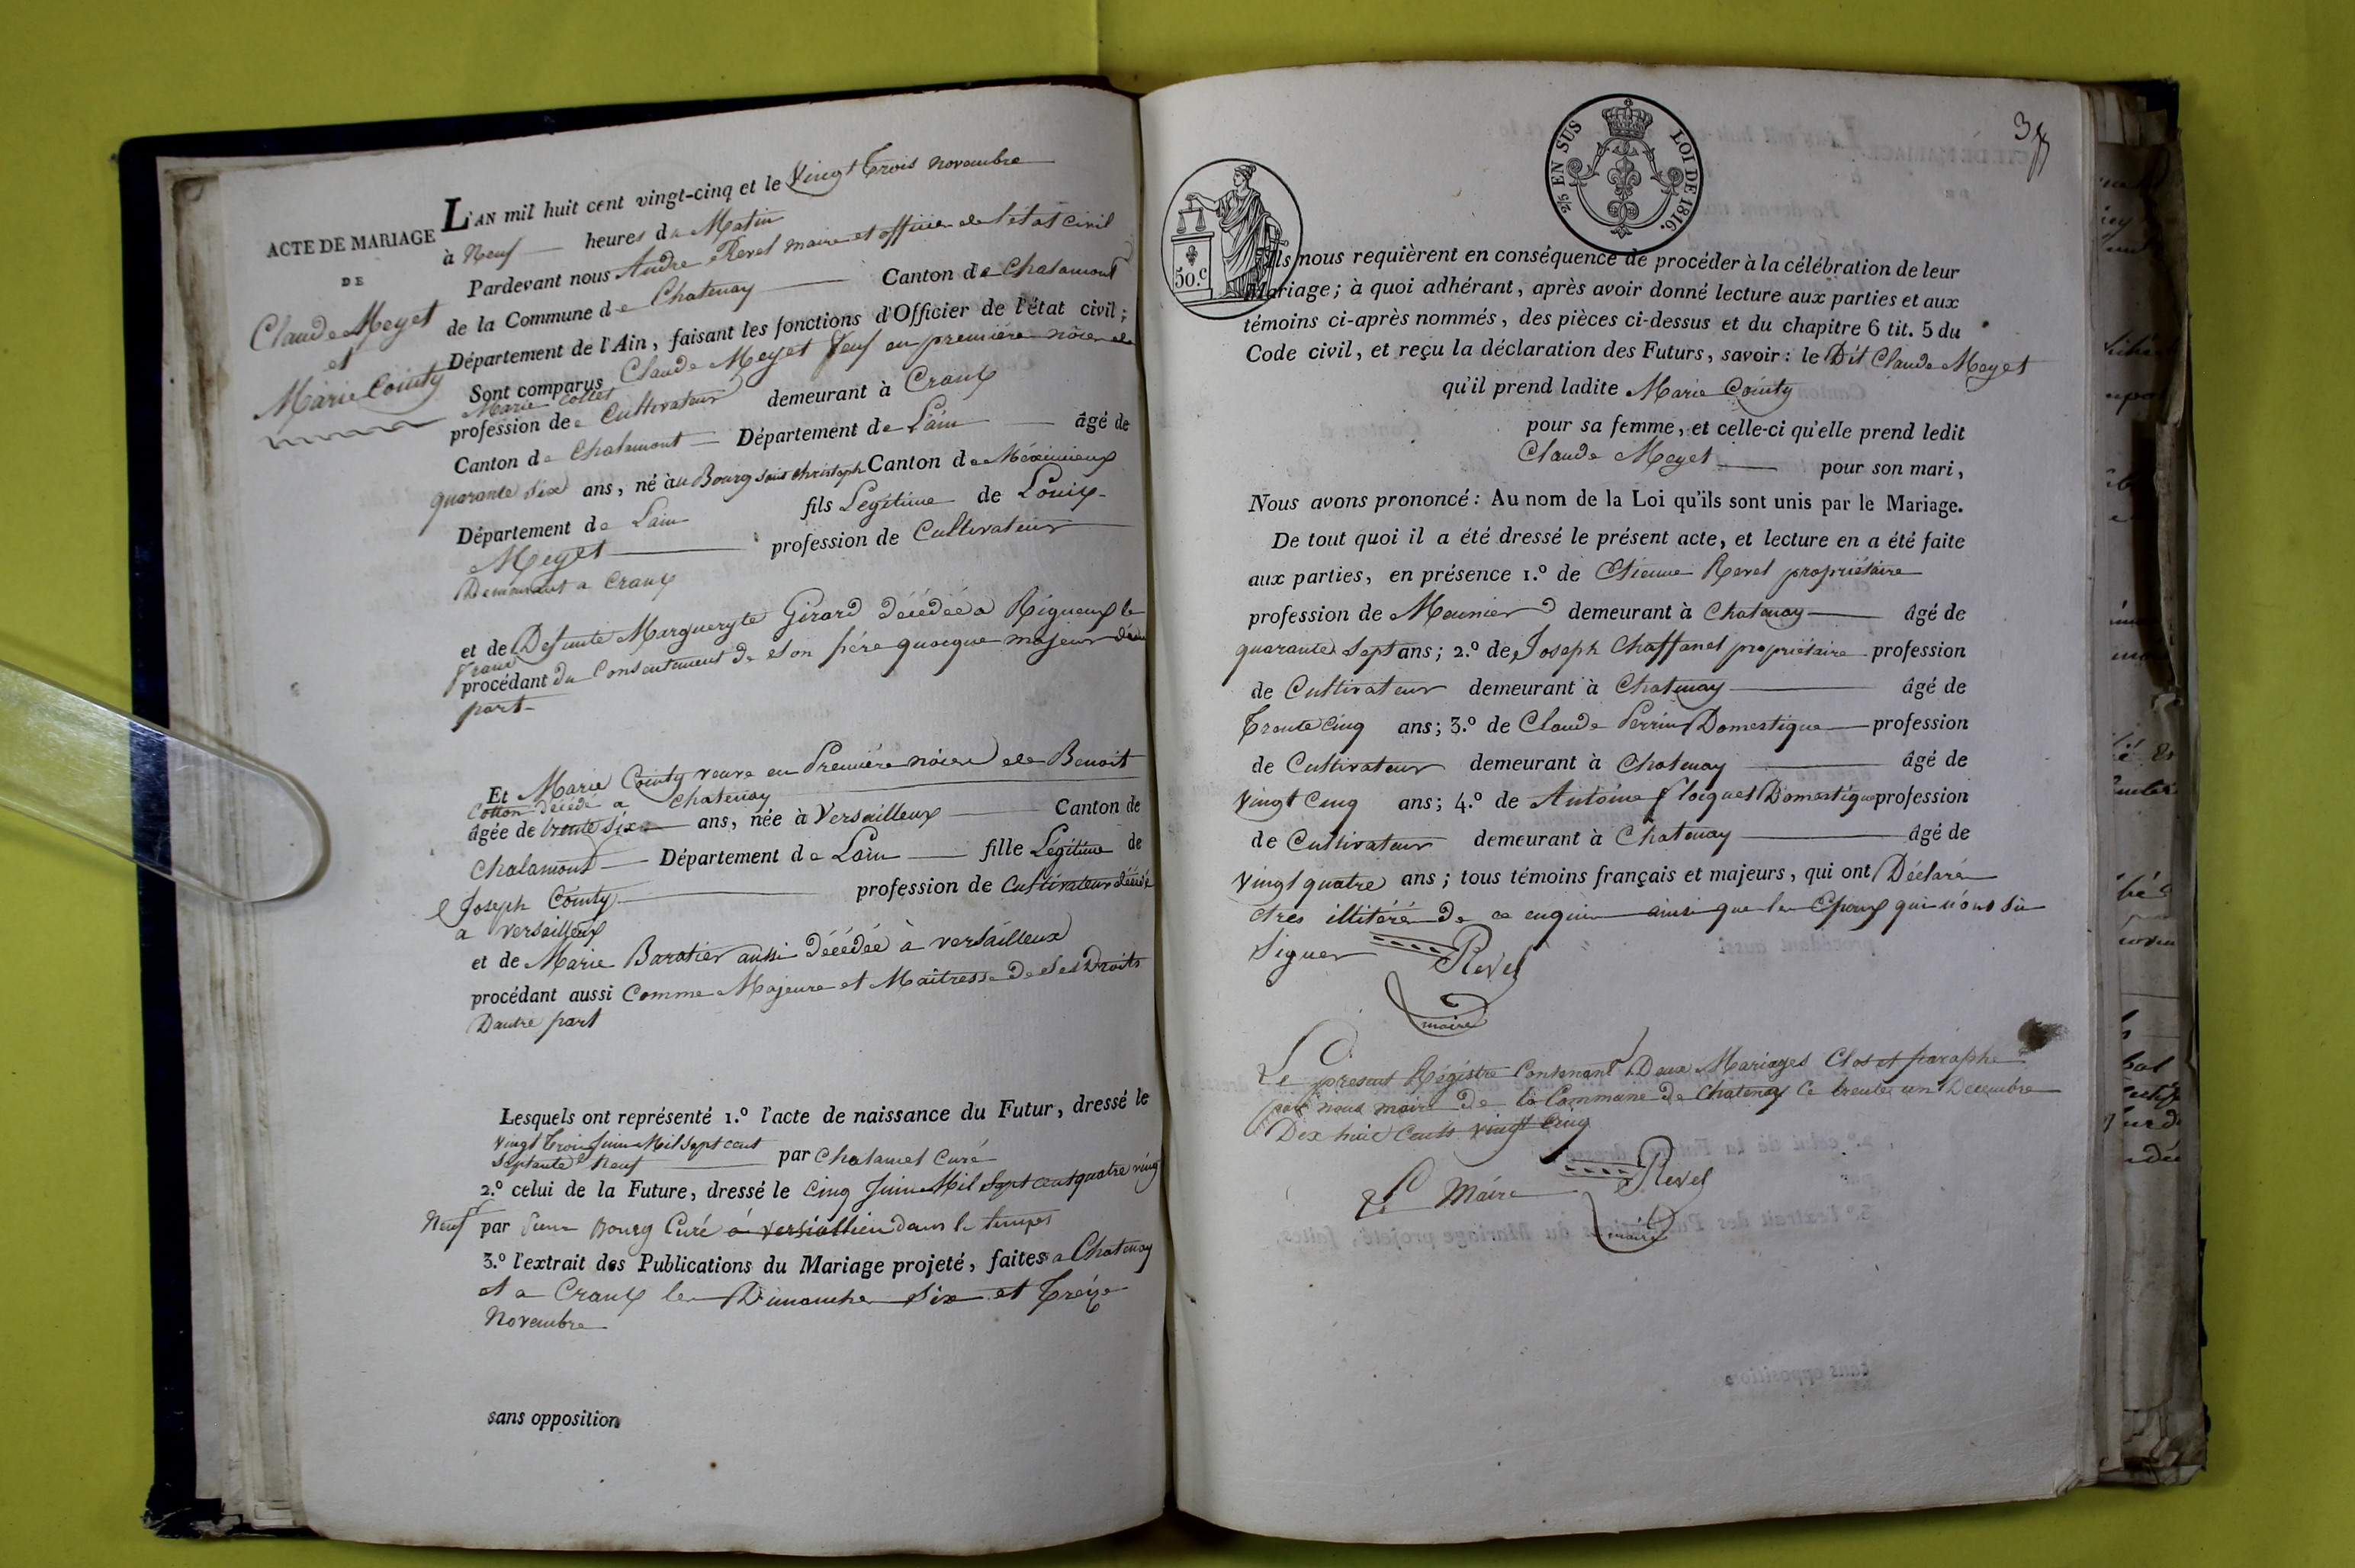 ACTE DE MARIAGE
DE
Claude Meyet
et
Marie Cointy
L'AN mil huit cent vingt-cinq et le Vingt trois novembre
à Neuf heures du Matin
Pardevant nous Andre Revel maire et officier de l'état civil
de la Commune de Chatenay Canton de Chalamont
Département de l'Ain, faisant les fonctions d'Officier de l'état civil ;
Sont comparus Claude Meyet Veuf en première nôce de
Marie Collet
profession de Cultivateur demeurant à Crans
Canton de Chalamont Département de Lain âgé de
quarante six ans, né au Bourg saint christoph Canton de Méximieux
Département de Lain fils Légitime de Louis
Meyet profession de Cultivateur
Demeurant a Crans
et de Defunte Margueryte Girard décédée a Rigneux le
franc
procédant du Consentement de son père quoique majeur d'une
part
Et Marie Cointy veuve en Première nôce de Benoit
Cotton décédé a Chatenay
âgée de trente six ans, née à Versailleux Canton de
Chalamont Département de Lain fille Légitime de
Joseph Cointy profession de Cultivateur décédé
a versailleux
et de Marie Baratier aussi décédée à versailleux
procédant aussi Comme Majeure et Maîtresse de ses Droits
Dautre part
Lesquels ont représenté 1.º l'acte de naissance du Futur, dressé le
vingt trois Juin Mil sept cent
septante neuf par Chalamel Curé
2.º celui de la Future, dressé le Cinq Juin Mil sept cent quatre vingt
Neuf par Bourg Curé à dans le temps
3.º l'extrait des Publications du Mariage projeté, faites a Chatenay
et a Crans les Dimanche six et treize
Novembre
sans opposition
3
50.c
2/5 EN SUS LOI DE 1816.
Ils nous requièrent en conséquence de procéder à la célébration de leur
mariage; à quoi adhérant, après avoir donné lecture aux parties et aux
témoins ci-après nommés, des pièces ci-dessus et du chapitre 6 tit. 5 du
Code civil, et reçu la déclaration des Futurs, savoir : le Dit Claude Meyet
qu'il prend ladite Marie Cointy
pour sa femme, et celle-ci qu'elle prend ledit
Claude Meyet pour son mari,
Nous avons prononcé : Au nom de la Loi qu'ils sont unis par le Mariage.
De tout quoi il a été dressé le présent acte, et lecture en a été faite
aux parties, en présence 1.º de Etienne Revel propriétaire
profession de Meunier demeurant à Chatenay âgé de
quarante sept ans; 2.º de Joseph Chaffanel propriétaire profession
de Cultivateur demeurant à Chatenay âgé de
trente cinq ans; 3.º de Claude Perrin Domestique profession
de Cultivateur demeurant à Chatenay âgé de
vingt Cinq ans; 4.º de Antoine Domestique profession
de Cultivateur demeurant à Chatenay âgé de
vingt quatre ans; tous témoins français et majeurs, qui ont Déclaré
êtres illitéré de ce enquis ainsi que les Epoux qui n'ont su
signer Revel
maire
Le present Régistre Contenant Deux Mariages Clos et paraphé
par nous maire de la Commune de Chatenay Ce trente un Décembre
Dix huit Cents vingt Cinq
Le Maire Revel
maire